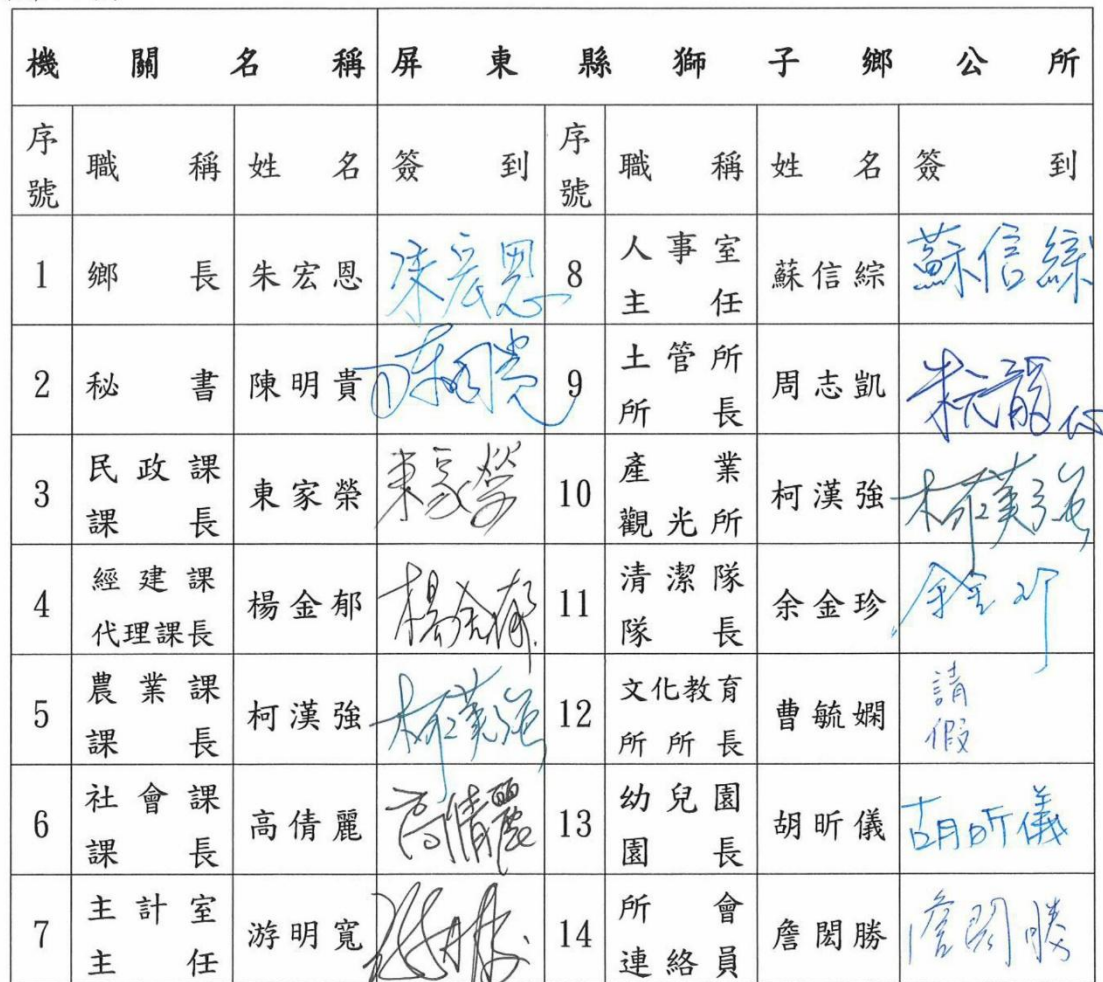 機關名稱 屏東縣獅子鄉公所
序號 職稱 姓名 簽到 序號 職稱 姓名 簽到
1 鄉長 朱宏恩 朱宏恩 8 人事室主任 蘇信綜 蘇信綜
2 秘書 陳明貴 9 土管所所長 周志凱
3 民政課課長 東家榮 東家榮 10 產業觀光所 柯漢強 柯漢強
4 經建課代理課長 楊金郁 楊金郁 11 清潔隊隊長 余金珍 余金珍
5 農業課課長 柯漢強 柯漢強 12 文化教育所所長 曹毓嫻 請假
6 社會課課長 高倩麗 高倩麗 13 幼兒園園長 胡昕儀 胡昕儀
7 主計室主任 游明寬 14 所會連絡員 詹閎勝 詹閎勝